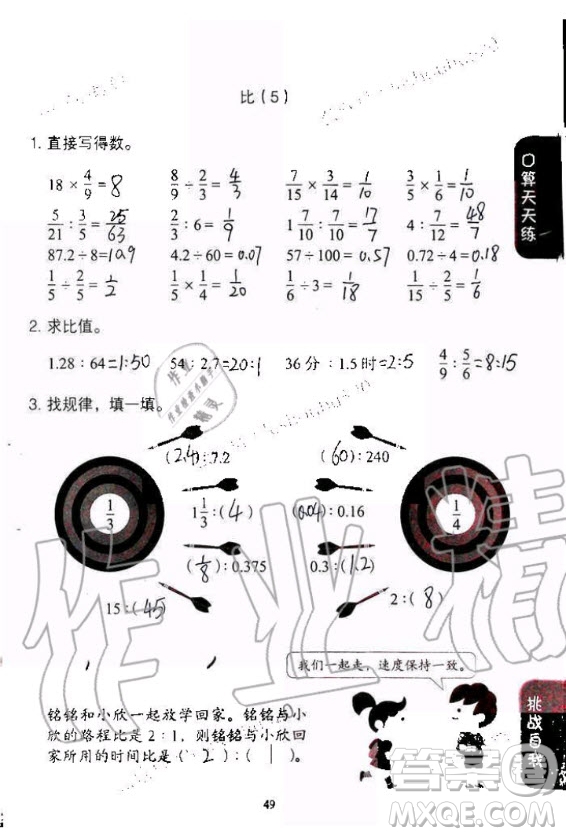 比（5）
1. 直接写得数。
18 × 4/9 = 8  8/9 ÷ 2/3 = 4/3  7/15 × 3/14 = 1/10  3/5 × 1/6 = 1/10
5/21 : 3/5 = 25/63  2/3 : 6 = 1/9  1 7/10 : 7/10 = 17/7  4 : 7/12 = 48/7
87.2 ÷ 8 = 10.9  4.2 ÷ 60 = 0.07  57 ÷ 100 = 0.57  0.72 ÷ 4 = 0.18
1/5 ÷ 2/5 = 1/2  1/5 × 1/4 = 1/20  1/6 ÷ 3 = 1/18  1/15 ÷ 2/5 = 1/6
口算天天练
2. 求比值。
1.28 : 64 = 1:50  54 : 2.7 = 20:1  36分 : 1.5时 = 2:5  4/9 : 5/6 = 8:15
3. 找规律，填一填。
(2.4) : 7.2  (60) : 240
1/3  1 1/3 : (4)  (0.04) : 0.16  1/4
(1/8) : 0.375  0.3 : (1.2)
15 : (45)  2 : (8)
我们一起走，速度保持一致。
铭铭和小欣一起放学回家。铭铭与小
欣的路程比是 2 : 1，则铭铭与小欣回
家所用的时间比是（2）:（1）。
挑战自我
49
作业精灵
答案圈
MXQE.COM